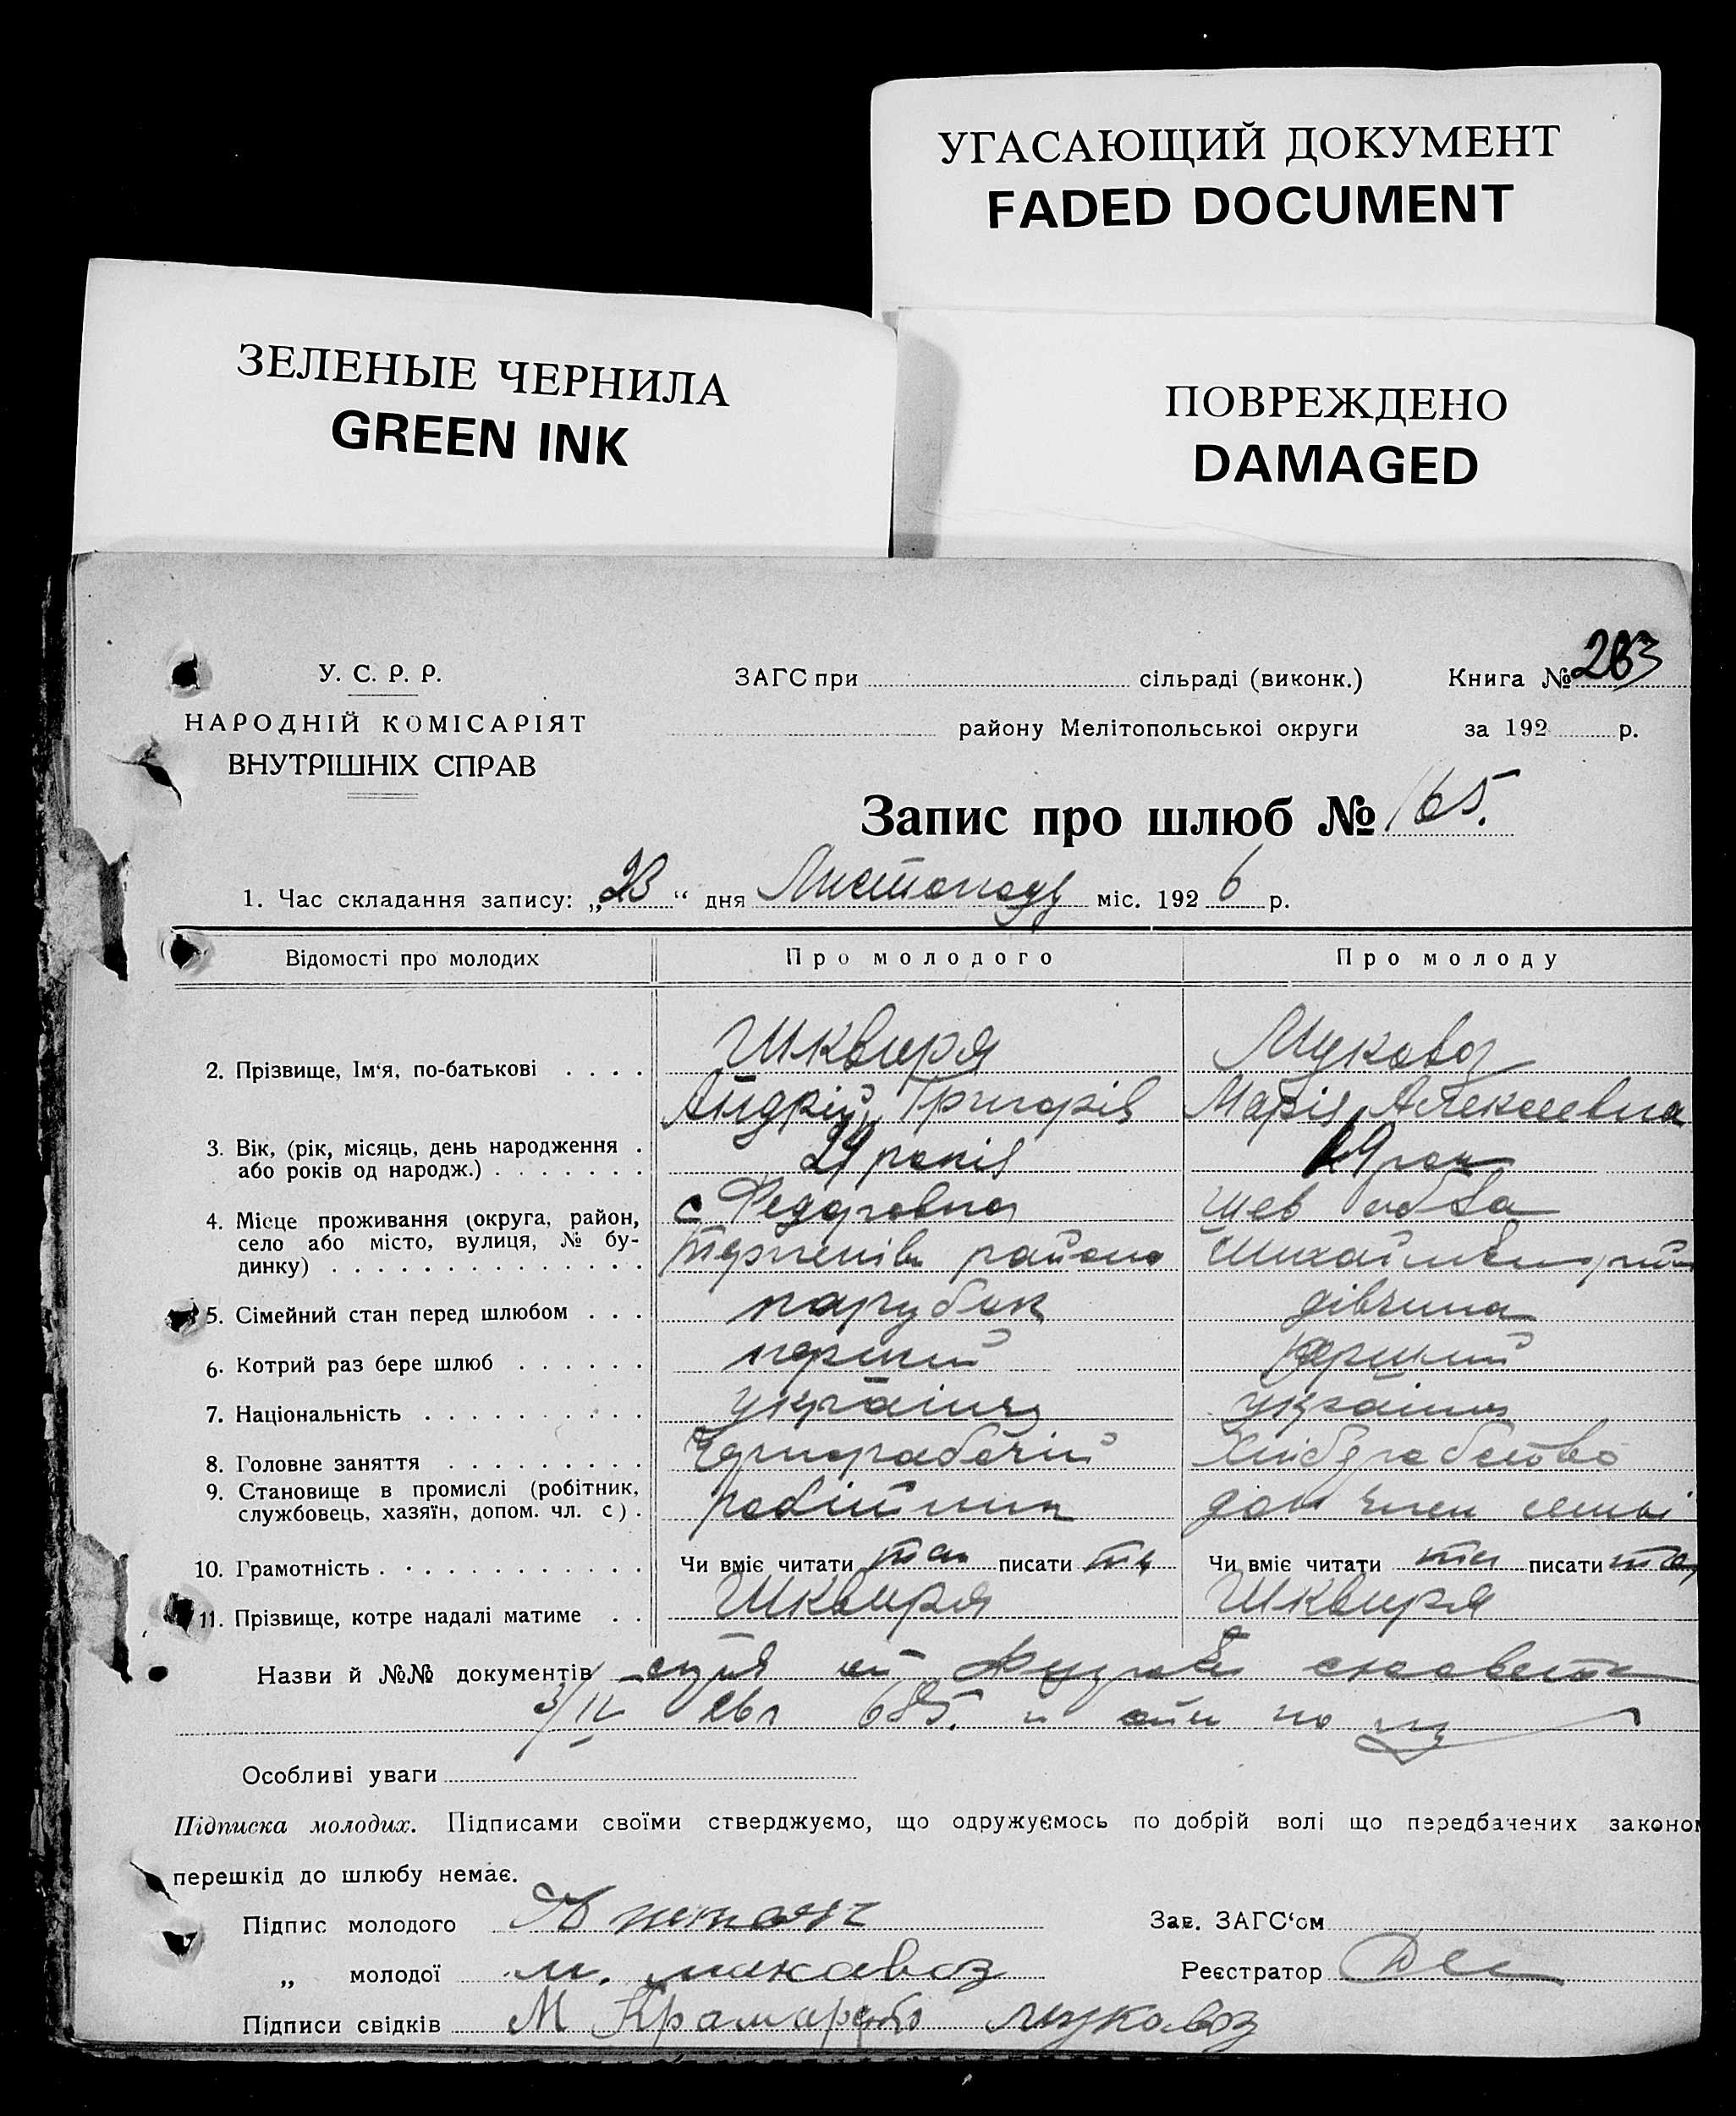 УГАСАЮЩИЙ ДОКУМЕНТ
FADED DOCUMENT
ЗЕЛЕНЫЕ ЧЕРНИЛА
GREEN INK
ПОВРЕЖДЕНО
DAMAGED
У. С. Р. Р.
НАРОДНІЙ КОМІСАРІЯТ
ВНУТРІШНІХ СПРАВ
ЗАГС при сільраді (виконк.) Книга №
району Мелітопольськоі округи за 192 р.
Запис про шлюб № 165.
1. Час складання запису: „23“ дня Листопаду міс. 1926 р.
Відомості про молодих Про молодого Про молоду
Шквиря Мукавоз
2. Прізвище, Ім‘я, по-батькові . . . .
Андрій Григорів Марія Алексеевна
3. Вік, (рік, місяць, день народження .
або років од народж.) . . . . . . . років
с Федоровка
4. Місце проживання (округа, район,
село або місто, вулиця, № бу- району
динку) . . . . . . . . . . . . . .
5. Сімейний стан перед шлюбом . . . парубок дівчина
6. Котрий раз бере шлюб . . . . . . перший перший
7. Національність . . . . . . . . . .
8. Головне заняття . . . . . . . . . Чернорабочій Хліборобство
9. Становище в промислі (робітник,
службовець, хазяїн, допом. чл. с). робітник доп член семьі
10. Грамотність . . . . . . . . . . . . Чи вміє читати так писати так Чи вміє читати так писати так
11. Прізвище, котре надалі матиме . . Шквиря Шквиря
Назви й №№ документів
685.
Особливі уваги
Підписка молодих. Підписами своїми стверджуємо, що одружуємось по добрій волі що передбачених законом
перешкід до шлюбу немає.
Підпис молодого Зав. ЗАГС‘ом
„ молодої м. мукавоз Реєстратор
Підписи свідків М Крамар мукавоз